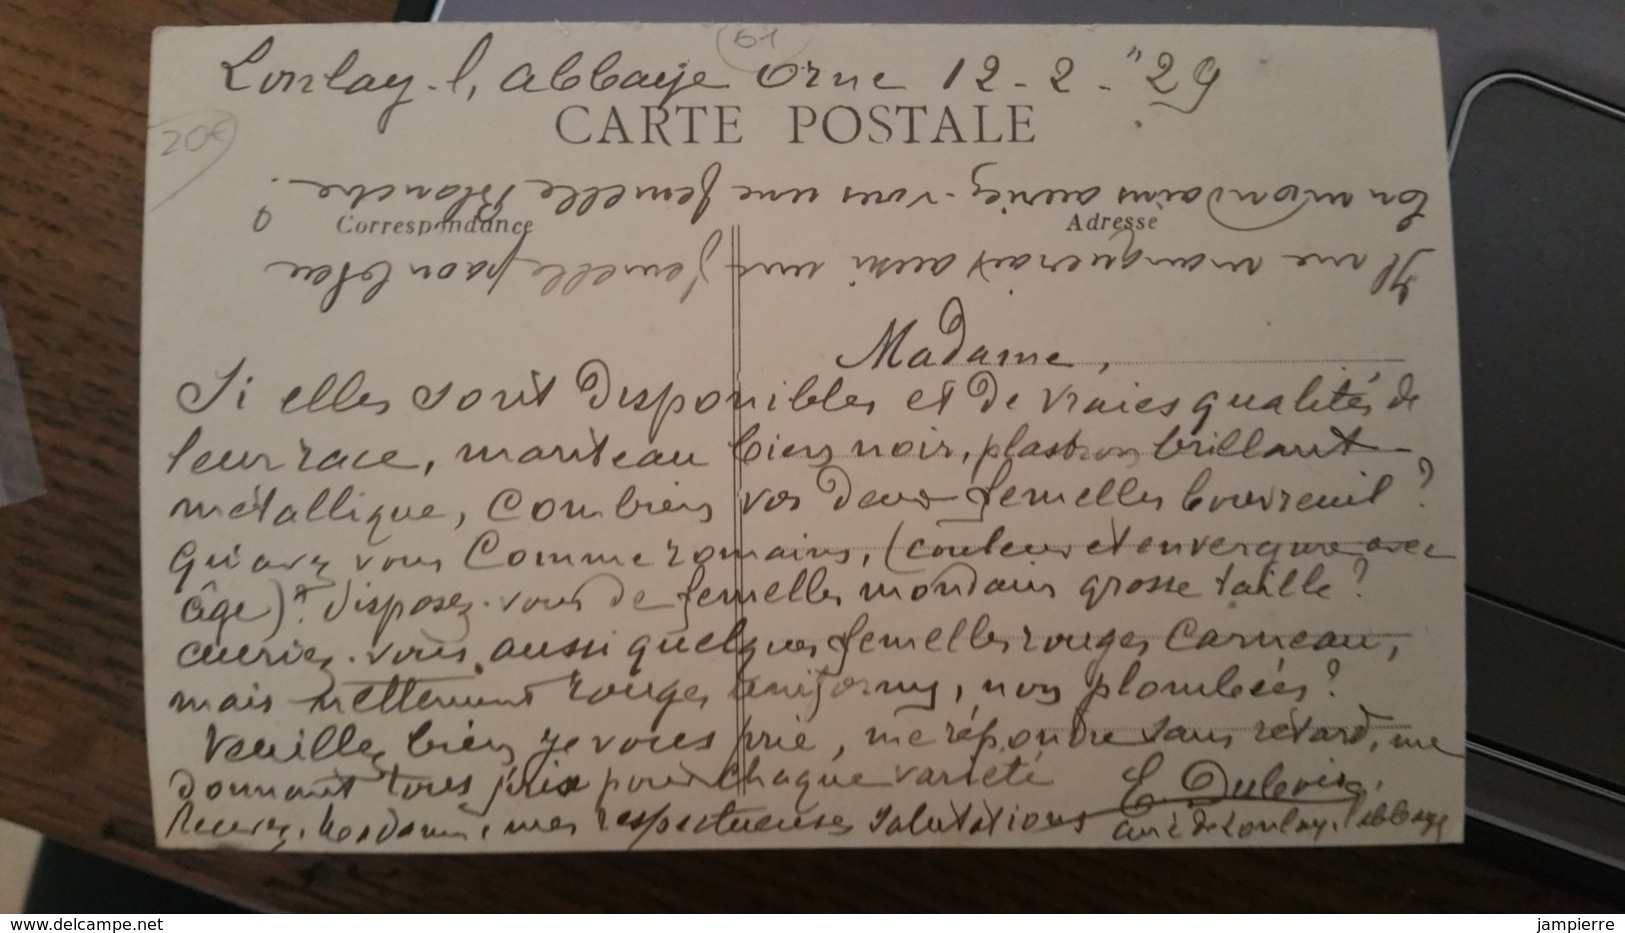 61
Lonlay-l, abbaye Orne 12-2-"29
20€
CARTE POSTALE
Correspondance
Adresse
Madame,
Si elles sont disponibles et de vraies qualités de
leur race, manteau bien noir, plastron brillant
métallique, combien vos deux femelles bouvreuil ?
Qu'avez vous comme romains, (couleur et envergure avec
âge) ? disposez-vous de femelles mondains grosse taille ?
auriez-vous aussi quelques femelles rouges Carneau,
mais nettement rouges uniforms, non plombées ?
Veuillez bien je vous prie, me répondre sans retard, me
donnant tous prix pour chaque varieté
Recevez, Madame, mes respectueuses salutations
E Dubois,
curé de Lonlay l'abbaye
Il me manquerait aussi une femelle paon bleu
En mondains auriez-vous une femelle Blanche.
delcampe.net
jampierre